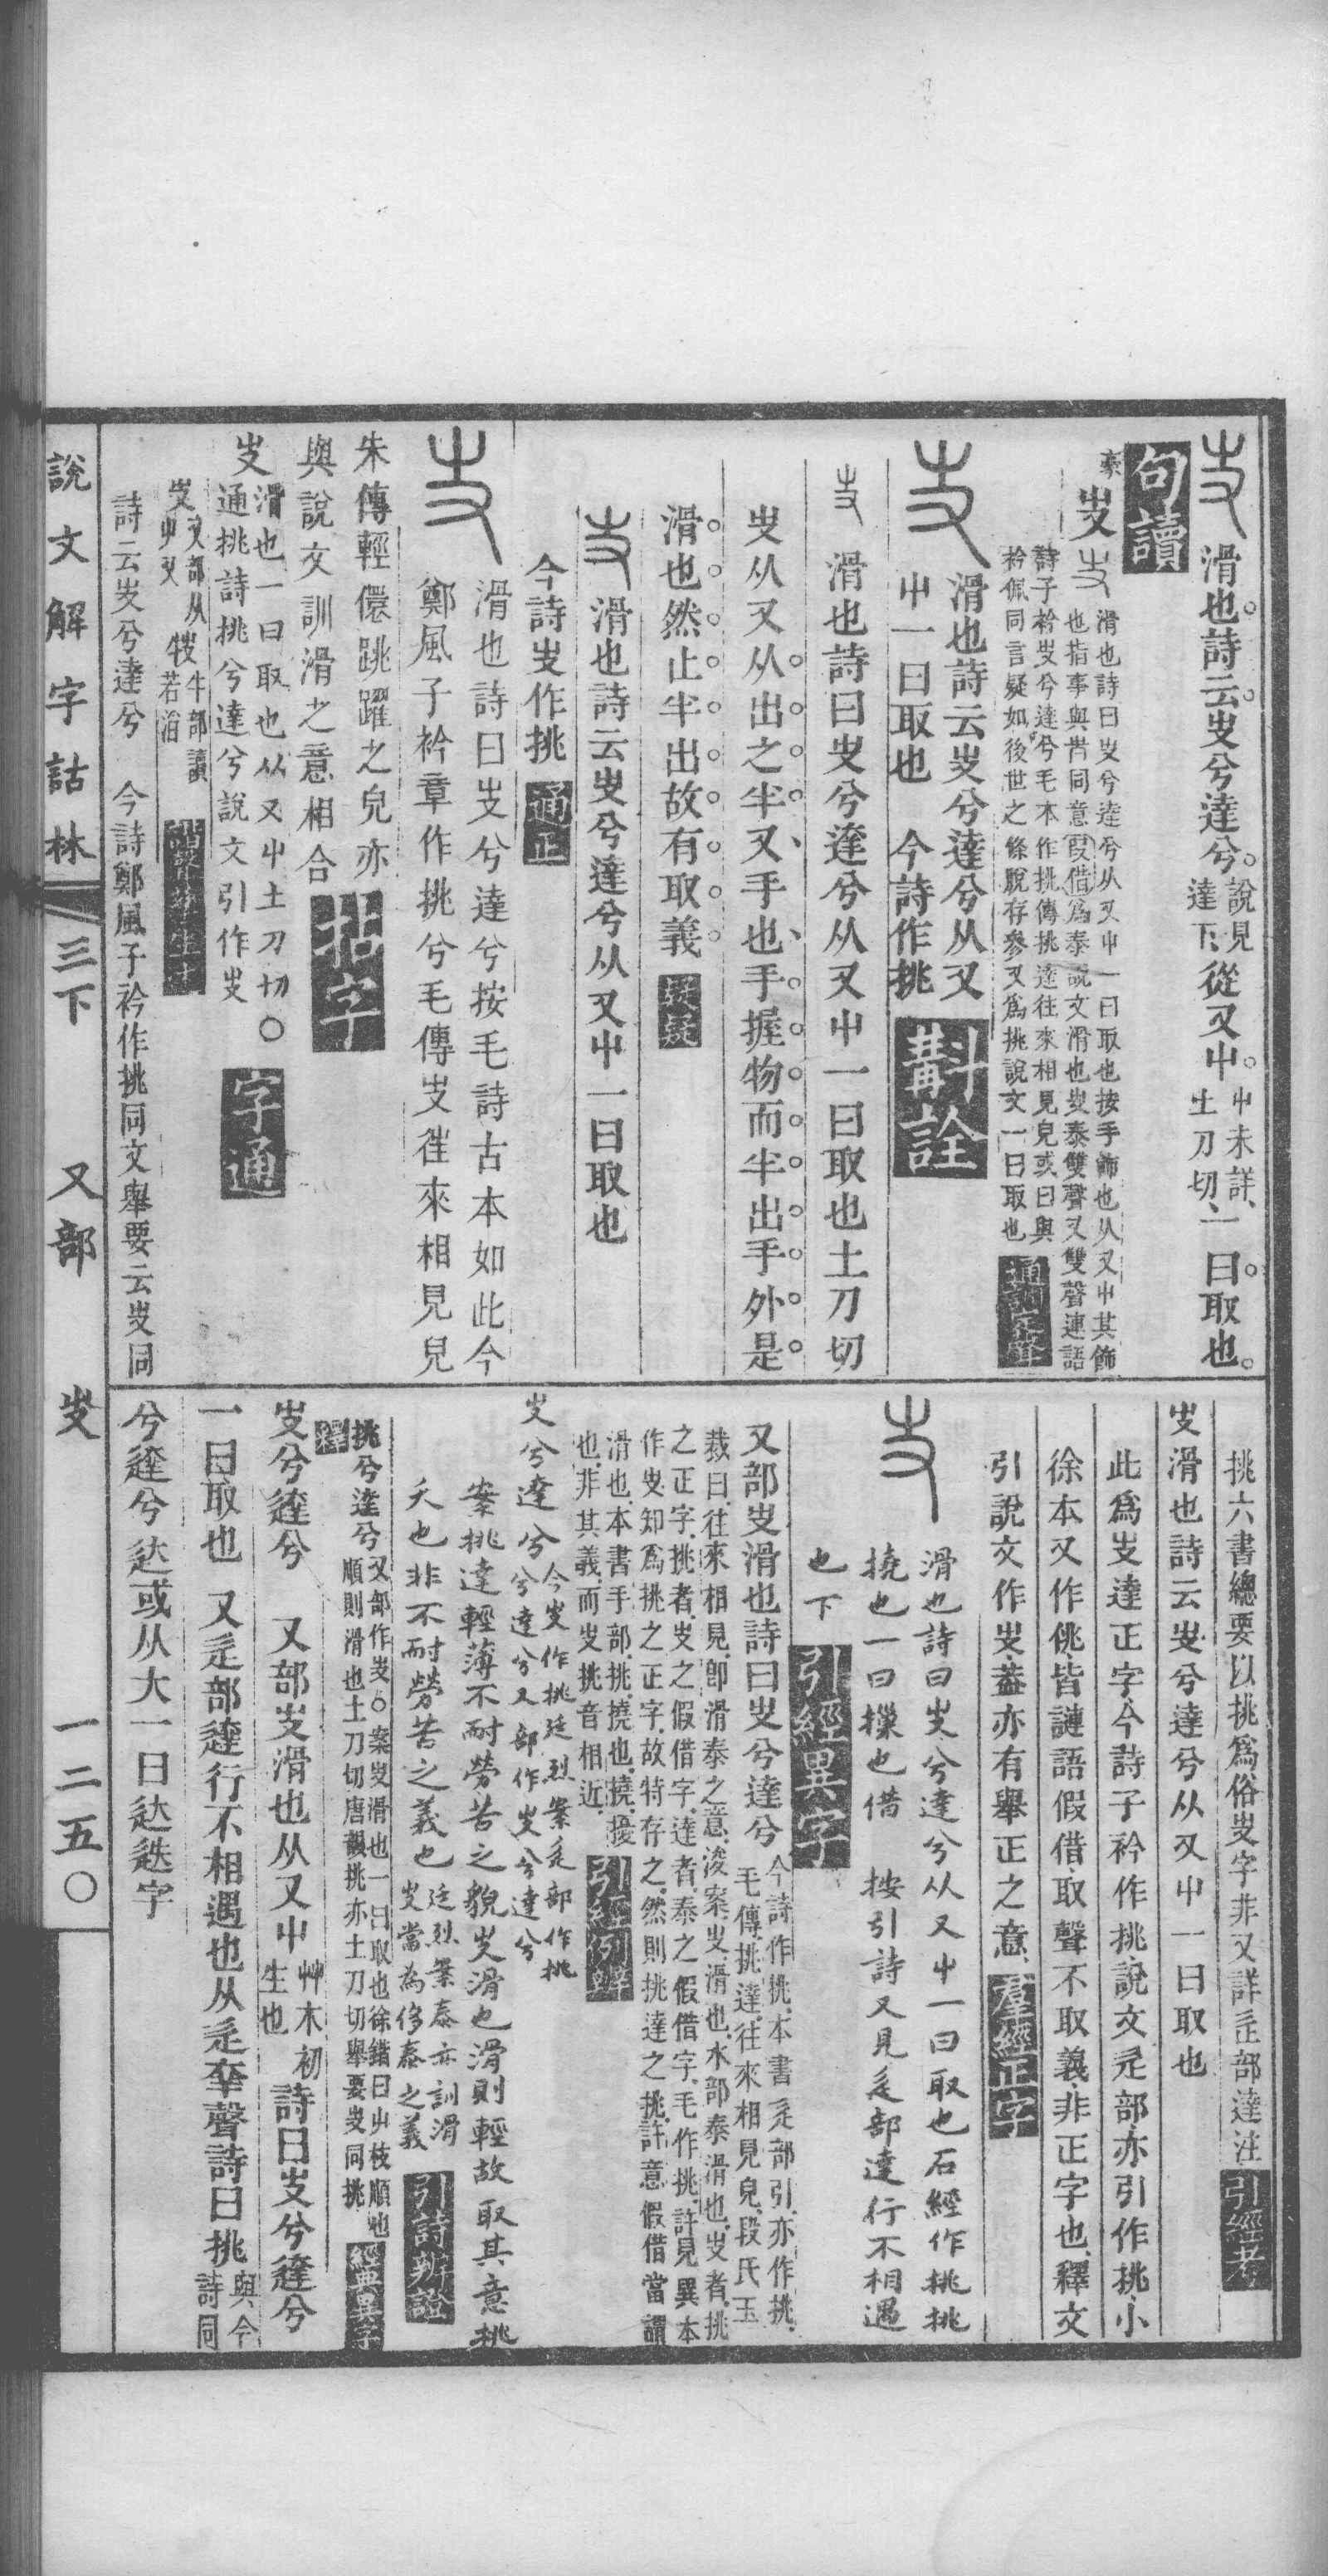 𠬢滑也詩云𠬢兮達兮說見達下從又屮屮未詳土刀切一曰取也
句讀
泰𠬢滑也詩曰𠬢兮達兮从又屮一曰取也按手飾也从又屮其飾
也指事與𡴀同意叚借爲泰說文滑也𠬢泰雙聲又雙聲連語
詩子衿𠬢兮達兮毛本作挑傳挑達往來相見皃或曰與
衿佩同言疑如後世之絛脫存參又爲挑說文一曰取也通訓定聲
𠬢滑也詩云𠬢兮達兮从又
屮一曰取也 今詩作挑斠詮
𠬢滑也詩曰𠬢兮達兮从又屮一曰取也土刀切
𠬢从又从出之半又手也手握物而半出手外是
滑也然止半出故有取義疑疑
𠬢滑也詩云𠬢兮達兮从又屮一曰取也
今詩𠬢作挑通正
𠬢滑也詩曰𠬢兮達兮按毛詩古本如此今
鄭風子衿章作挑兮毛傳𠬢往來相見皃
朱傳輕儇跳躍之皃亦
與說文訓滑之意相合拈字
𠬢滑也一曰取也从又屮土刀切〇
通挑詩挑兮達兮說文引作𠬢字通
𠬢又部从屮又 牧牛部讀若滔諧聲孳生
詩云𠬢兮達兮 今詩鄭風子衿作挑同文舉要云𠬢同
挑六書總要以挑爲俗𠬢字非又詳辵部達注引經考
𠬢滑也詩云𠬢兮達兮从又屮一曰取也
此爲𠬢達正字今詩子衿作挑說文辵部亦引作挑小
徐本又作佻皆謰語假借取聲不取義非正字也釋文
引說文作𠬢葢亦有舉正之意羣經正字
𠬢滑也詩曰𠬢兮達兮从又屮一曰取也石經作挑挑
撓也一曰摷也借 按引詩又見辵部達行不相遇
也下引經異字
又部𠬢滑也詩曰𠬢兮達兮今詩作挑本書辵部引亦作挑
毛傳挑達往來相見皃段氏玉
裁曰往來相見卽滑泰之意浚案𠬢滑也水部泰滑也𠬢者挑
之正字挑者𠬢之假借字達者泰之假借字毛作挑許見異本
作𠬢知爲挑之正字故特存之然則挑達之挑許意假借當謂
滑也本書手部挑撓也撓擾
也非其義而𠬢挑音相近引經例辨
𠬢兮達兮今𠬢作挑廷烈案辵部作挑
兮達兮又部作𠬢兮達兮
案挑達輕薄不耐勞苦之貌𠬢滑也滑則輕故取其意挑
夭也非不耐勞苦之義也廷烈案泰亦訓滑
𠬢當為侈泰之義引詩辨證
挑兮達兮又部作𠬢〇案𠬢滑也一曰取也徐鍇曰屮枝順也
順則滑也土刀切唐韻挑亦土刀切舉要𠬢同挑經典異字
釋
𠬢兮達兮 又部𠬢滑也从又屮艸木初生也詩曰𠬢兮達兮
一曰取也 又辵部達行不相遇也从辵羍聲詩曰挑與今詩同
兮達兮达或从大一曰达迭字
說文解字詁林 三下 又部 𠬢 一二五〇